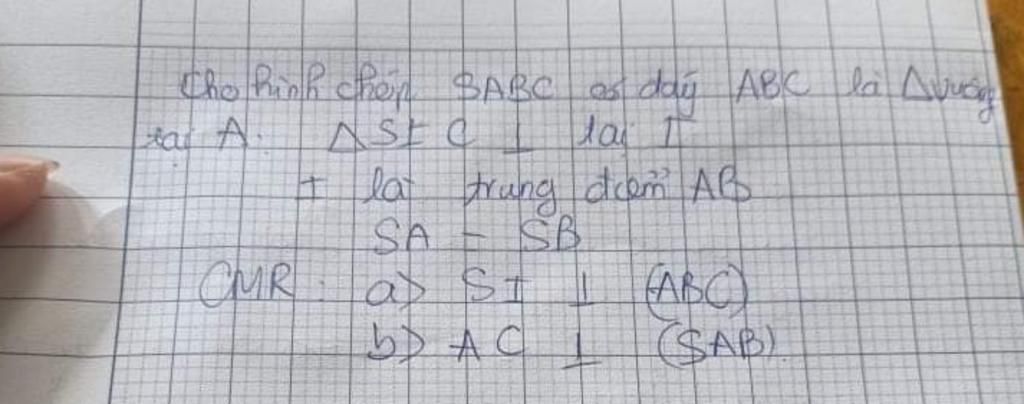 Cho hình chóp SABC có đáy ABC là Δvuông
tại A. ΔSIC ⊥ tại I
I là trung điểm AB
SA = SB
CMR: a) SI ⊥ (ABC)
b) AC ⊥ (SAB).